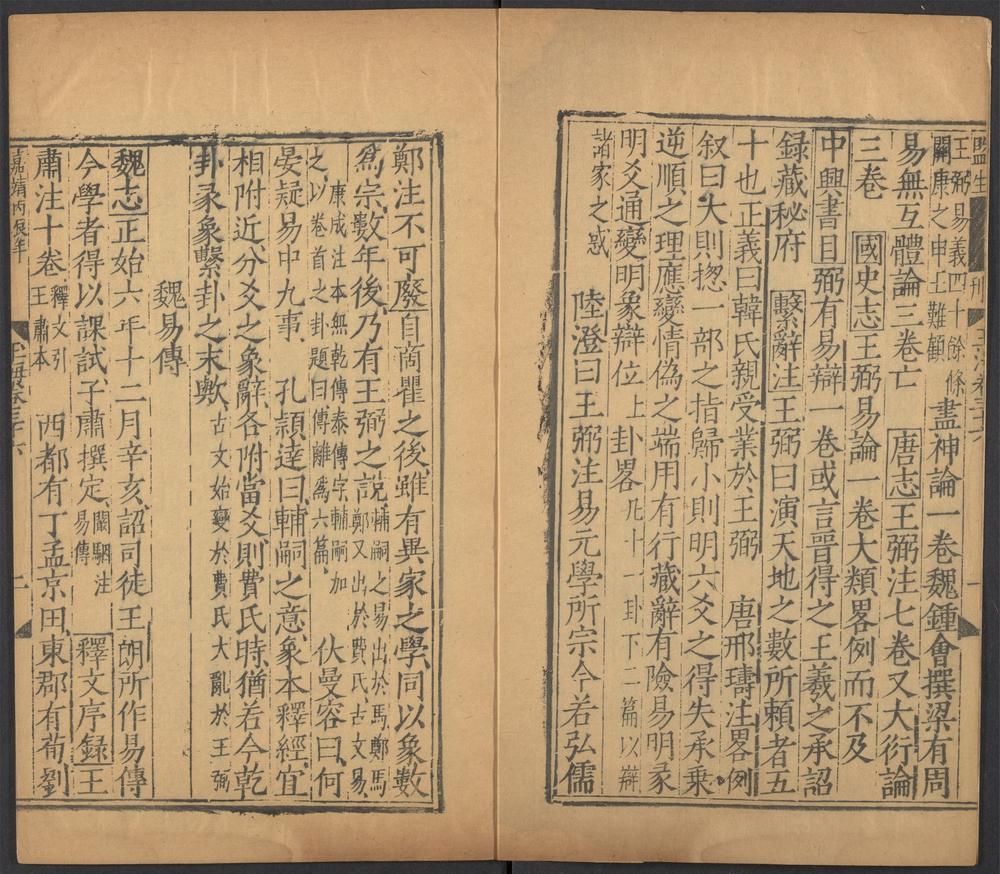 王弼易義四十餘條
關康之申王難顧
盡神論一卷魏鍾會撰梁有周
易無互體論三卷亡 唐志王弼注七卷又大衍論
三卷 國史志王弼易論一卷大類畧例而不及
中興書目弼有易辯一卷或言晉得之王羲之承詔
録藏秘府 繫辭注王弼曰演天地之數所賴者五
十也正義曰韓氏親受業於王弼 唐邢璹注畧例
叙曰大則揔一部之指歸小則明六爻之得失承乗
逆順之理應變情偽之端用有行藏辭有險易明彖
明爻通變明象辯位上卦畧凡十一卦下二篇以辯
諸家之惑
陸澄曰王弼注易元學所宗今若弘儒
鄭注不可廢自商瞿之後雖有異家之學同以象數
爲宗數年後乃有王弼之説輔嗣之易出於馬鄭馬
鄭又出於費氏古文易
康成注本無乾傳泰傳字輔嗣加
之以卷首之卦題曰傳離爲六篇
伏曼容曰何
晏疑易中九事 孔頴逹曰輔嗣之意象本釋經宜
相附近分爻之象辭各附當爻則費氏時猶若今乾
卦彖象繫卦之末歟古文始變於費氏大亂於王弼
魏易傳
魏志正始六年十二月辛亥詔司徒王朗所作易傳
今學者得以課試子肅撰定易傳
闞駰注
釋文序録王
肅注十卷釋文引
王肅本
西都有丁孟京田東郡有荀劉
嘉靖丙辰年